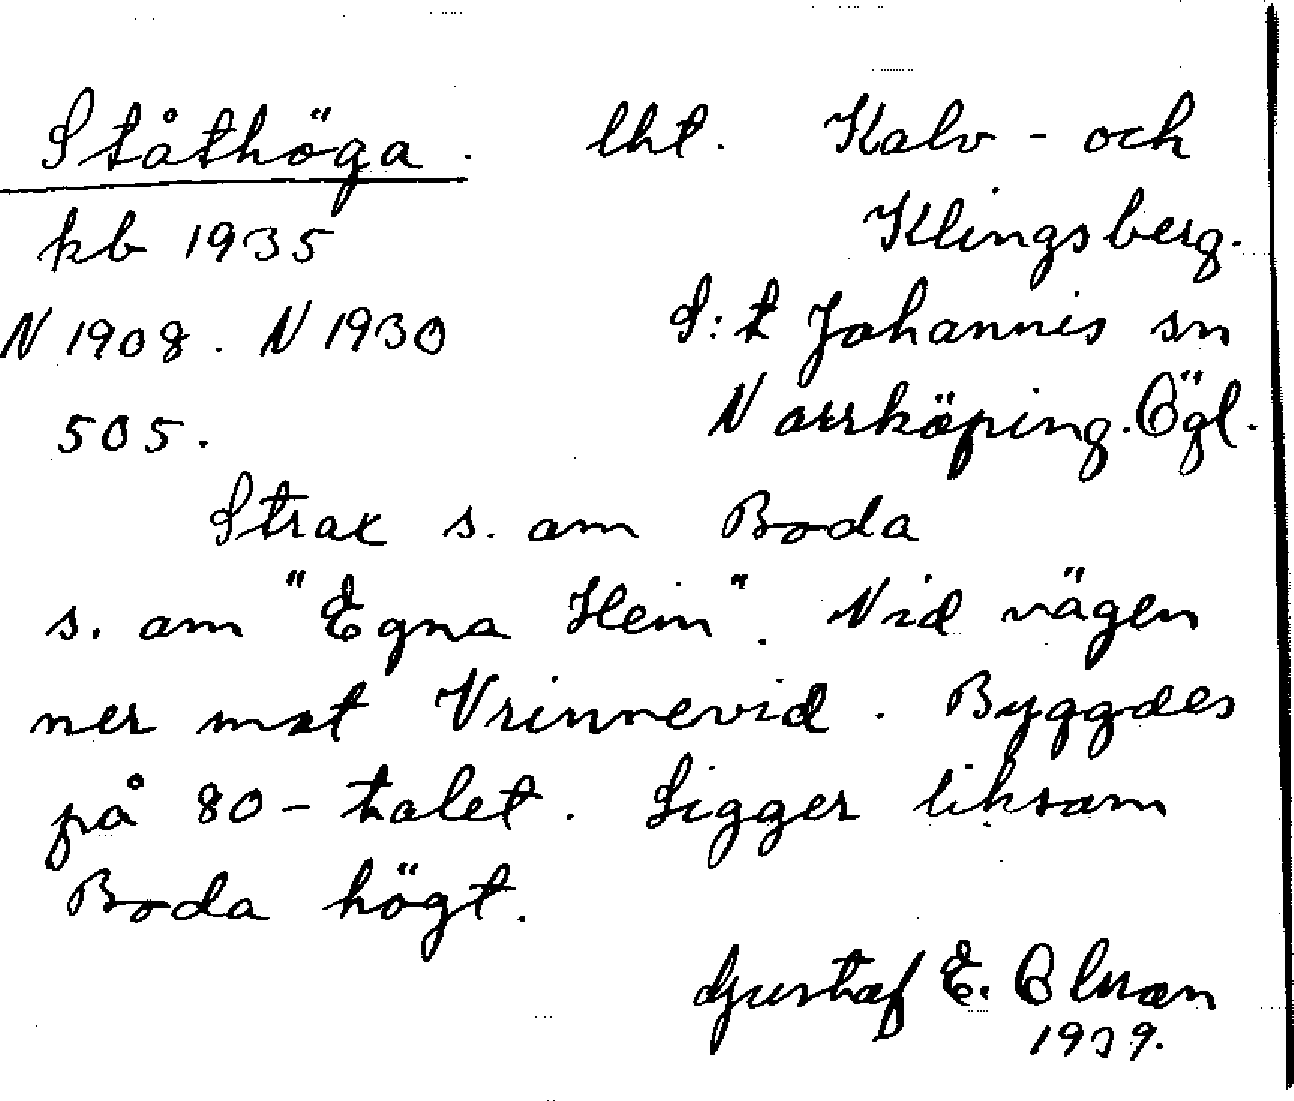 Ståthöga. lht. Kalv- och
kb 1935 Klingsberg.
N 1908. N 1930 S:t Johannis sn
505. Norrköping. Ögl.
Strax s. om Boda
s. om "Egna Hem". Vid vägen
ner mot Vrinnevid. Byggdes
på 80-talet. Ligger liksom
Boda högt.
Gustaf E. Olson
1939.